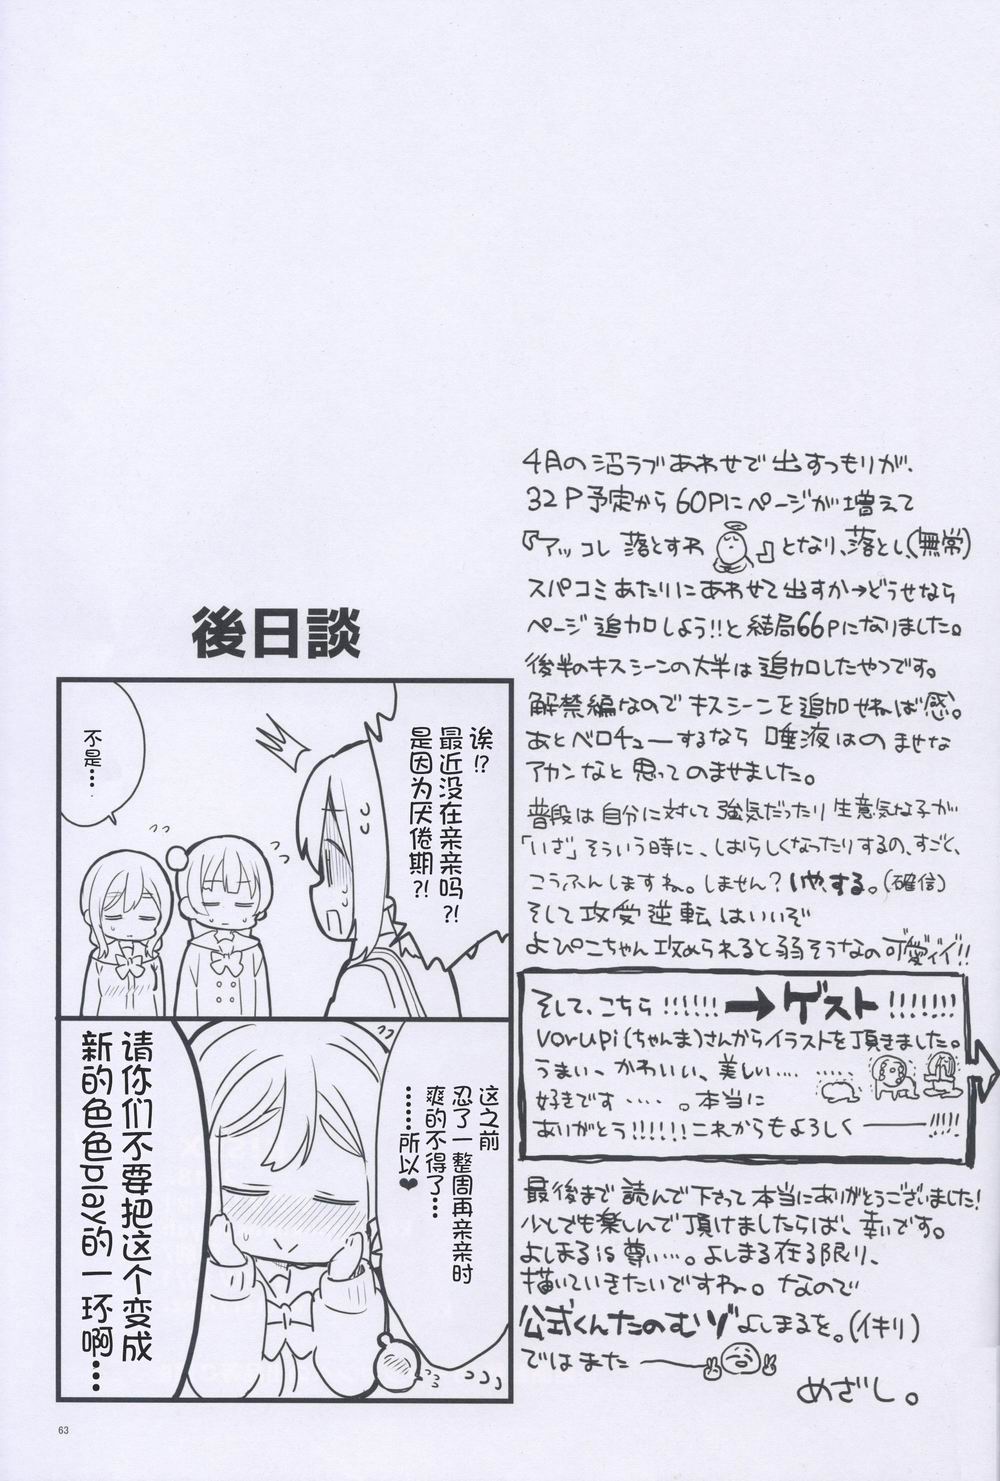 4月の沼ラブあわせで出すつもりが、
32P予定から60Pにページが増えて
『アッコレ落とすわ』となり、落とし、(無常)
スパコミあたりにあわせて出すか→どうせなら
ページ追加しよう!!と結局66Pになりました。
後半のキスシーンの大半は追加したやつです。
解禁編なのでキスシーンを追加せねば感。
あとベロチューするなら唾液はのませな
アカンなと思ってのませました。
普段は自分に対して強気だったり生意気な子が
「いざ」そういう時に、しおらしくなったりするの、すごく、
こうふんしますね。しません?いや、する。(確信)
そして攻受逆転はいいぞ
よぴこちゃん攻められると弱そうなの可愛イイ!!
そして、こちら!!!!!!→ゲスト!!!!!!!
vorupi(ちゃんま)さんからイラストを頂きました。
うまい、かわいい、美しい…
好きです…。本当に
ありがとう!!!!!!これからもよろしく――!!!!!
最後まで読んで下さって本当にありがとうございました!
少しでも楽しんで頂けましたらば、幸いです。
よしまるis尊い…。よしまる在る限り、
描いていきたいですね。なので
公式くんたのむゾよしまるを。(イキリ)
ではまた――
めざし。
後日談
诶!?
最近没在亲亲吗?!
是因为厌倦期?!
不是…
这之前
忍了一整周再亲亲时
爽的不得了…
……所以♥
请你们不要把这个变成
新的色色play的一环啊…
63